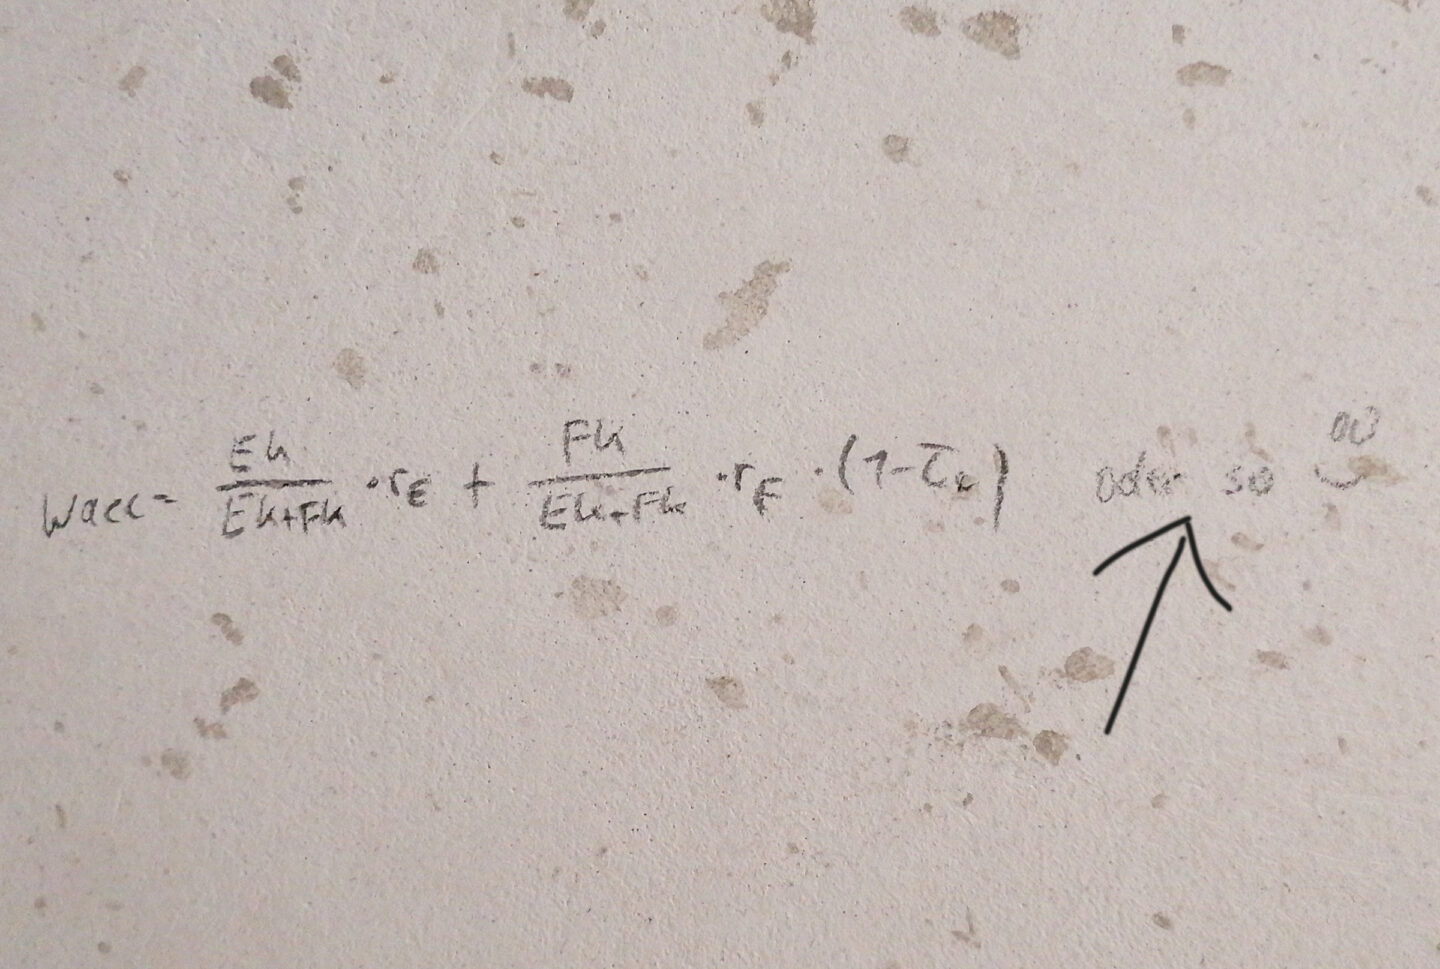 Wacc = Ek/(Ek+Fk) · rE + Fk/(Ek+Fk) · rF · (1-τc) oder so